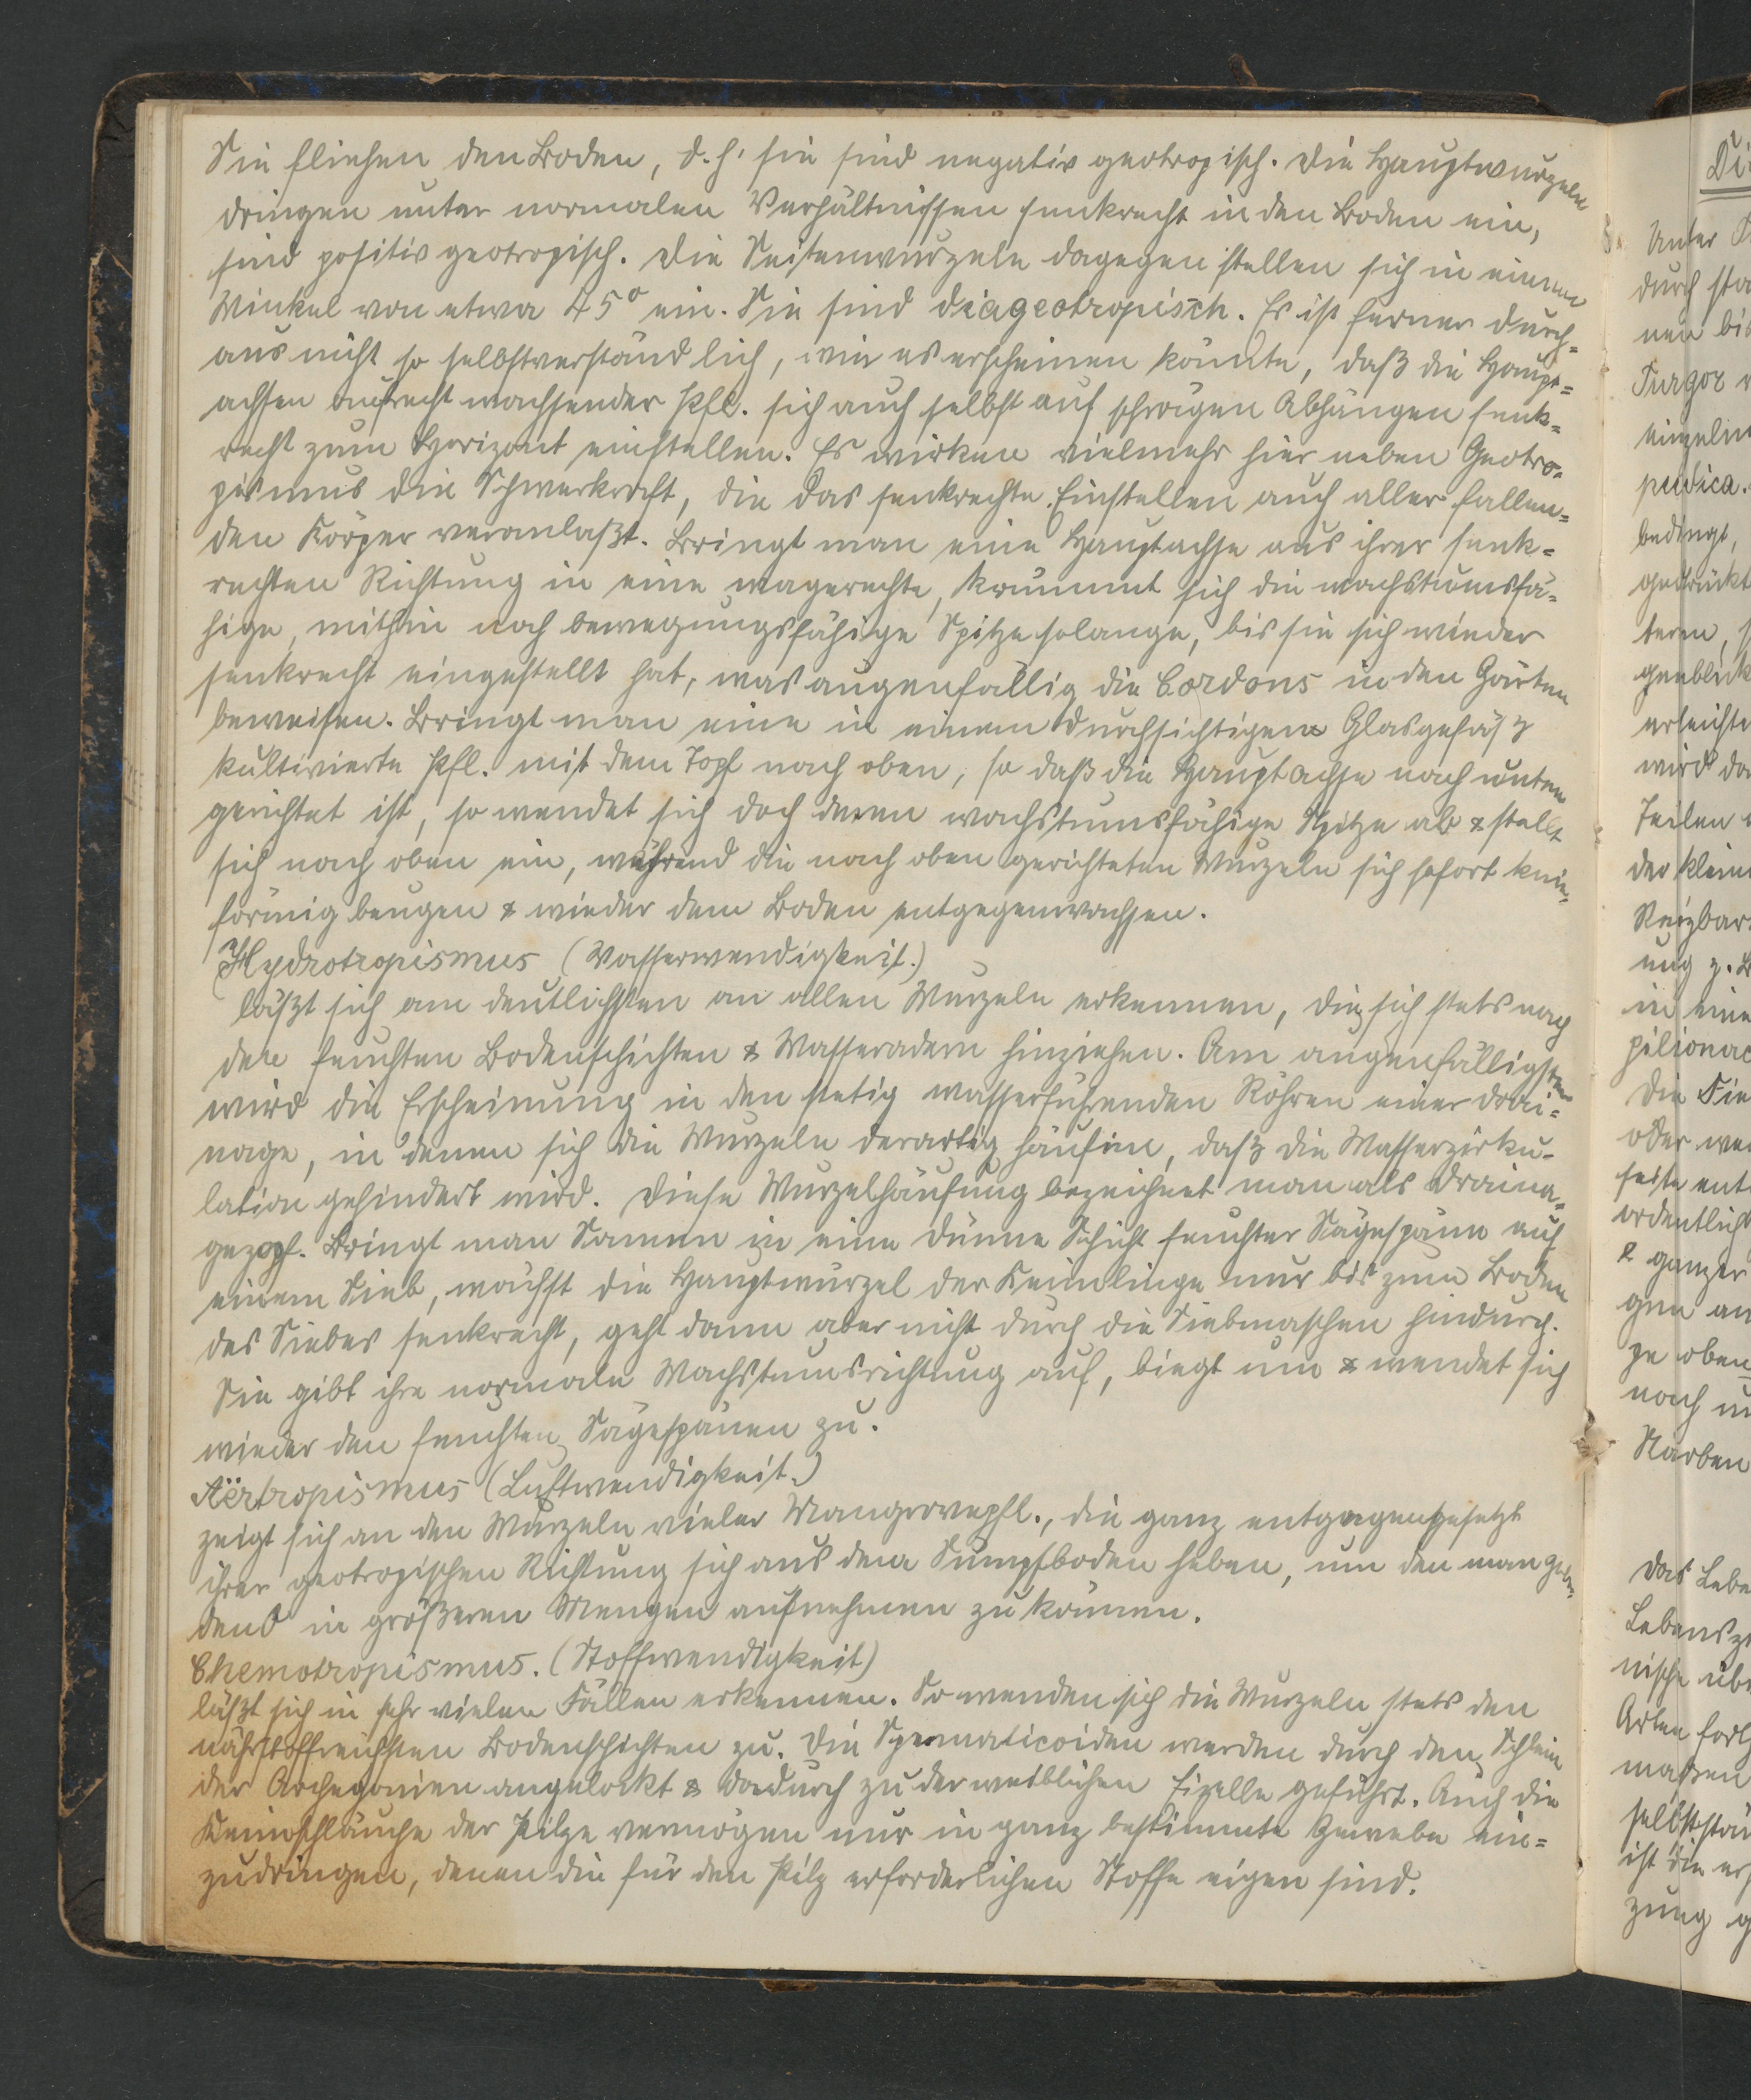 Sie fliehen den Boden, d. h. sie sind negativ geotropisch. Die Hauptwurzeln
dringen unter normalen Verhältnissen senkrecht in den Boden ein,
sind positiv geotropisch. Die Seitenwurzeln dagegen stellen sich in einem
Winkel von etwa 45° ein. Sie sind diageotropisch. Es ist ferner durch=
aus nicht so selbstverständlich, wie es erscheinen könnte, daß die Haupt=
achsen aufrecht wachsender Pfl. sich auch selbst auf schrägen Abhängen senk=
recht zum Horizont einstellen. Es wirken vielmehr hier neben Geotro=
pismus die Schwerkraft, die das senkrechte Einstellen auch aller fallen=
den Körper veranlaßt. Bringt man eine Hauptachse aus ihrer senk=
rechten Richtung in eine wagerechte, krümmt sich die wachstumsfä=
hige, mithin noch bewegungsfähige Spitze solange, bis sie sich wieder
senkrecht eingestellt hat, was augenfällig die Cordons in den Gärten
beweisen. Bringt man eine in einem durchsichtigen Glasgefäß
kultivierte Pfl. mit dem Topf nach oben, so daß die Hauptachse nach unten
gerichtet ist, so wendet sich doch deren wachstumsfähige Spitze ab & stellt
sich nach oben ein, während die nach oben gerichteten Wurzeln sich sofort knie=
förmig beugen & wieder dem Boden entgegenwachsen.
Hydrotropismus (Wasserwendigkeit.)
läßt sich am deutlichsten an allen Wurzeln erkennen, die sich stets nach
den feuchten Bodenschichten & Wasseradern hinziehen. Am augenfälligsten
wird die Erscheinung in den stetig wasserführenden Röhren einer Drai=
nage, in denen sich die Wurzeln derartig häufen, daß die Wasserzirku=
lation gehindert wird. Diese Wurzelhäufung bezeichnet man als Draina=
gezopf. Bringt man Samen in eine dünne Schicht feuchter Sägespäne auf
einem Sieb, wächst die Hauptwurzel der Keimlinge nur bis zum Boden
des Siebes senkrecht, geht dann aber nicht durch die Siebmaschen hindurch.
Sie gibt ihre normale Wachstumsrichtung auf, biegt um & wendet sich
wieder den feuchten Sägespänen zu.
Aërtropismus (Luftwendigkeit.)
zeigt sich an den Wurzeln vieler Mangrovepfl., die ganz entgegengesetzt
ihrer geotropischen Richtung sich aus dem Sumpfboden heben, um den man=
den O in größeren Mengen aufnehmen zu können.
Chemotropismus. (Stoffwendigkeit)
läßt sich in sehr vielen Fällen erkennen. So wenden sich die Wurzeln stets den
nährstoffreichsten Bodenschichten zu. Die Spermaticoiden werden durch den Schleim
der Archegonien angelockt & dadurch zu der weiblichen Eizelle geführt. Auch die
Keimschläuche der Pilze vermögen nur in ganz bestimmte Gewebe ein=
zudringen, denen die für den Pilz erforderlichen Stoffe eigen sind.
Di
Unter
durch
nen bis
Turgor
einzeln
pudica.
bedingt,
gedrückt
teren,
erleichte
wird
Teilen
der klein
Reizbar
ung z. B
in eine
pilionac
Die
oder
seite ent
ordentlich
& ganzer
gen an
ge oben
nach
Narben
Das Lebe
Lebens
nische
Arten
maßen
selbststän
ist die
zung g